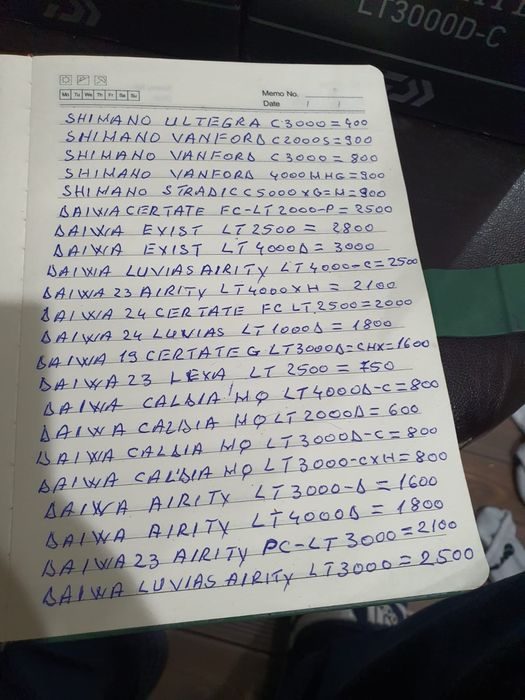 LT3000D-C
Mo Tu We Th Fr Sa Su
Memo No.
Date / /
SHIMANO ULTEGRA C3000=400
SHIMANO VANFORD C2000S=900
SHIMANO VANFORD C3000=800
SHIMANO VANFORD 4000MHG=900
SHIMANO STRADIC C5000XG=M=900
DAIWA CERTATE FC-LT2000-P=2500
DAIWA EXIST LT2500=2800
DAIWA EXIST LT4000D=3000
DAIWA LUVIAS AIRITY LT4000-C=2500
DAIWA 23 AIRITY LT4000XH=2100
DAIWA 24 CERTATE FC LT.2500=2000
DAIWA 24 LUVIAS LT1000D=1800
DAIWA 19 CERTATE G LT3000D=CHX=1600
DAIWA 23 LEXA LT 2500=750
DAIWA CALDIA MQ LT4000D-C=800
DAIWA CALDIA MQ LT2000D=600
DAIWA CALDIA MQ LT3000D-C=800
DAIWA CALDIA MQ LT3000-CXH=800
DAIWA AIRITY LT3000-D=1600
DAIWA AIRITY LT4000D=1800
DAIWA 23 AIRITY PC-LT3000=2100
DAIWA LUVIAS AIRITY LT3000=2500